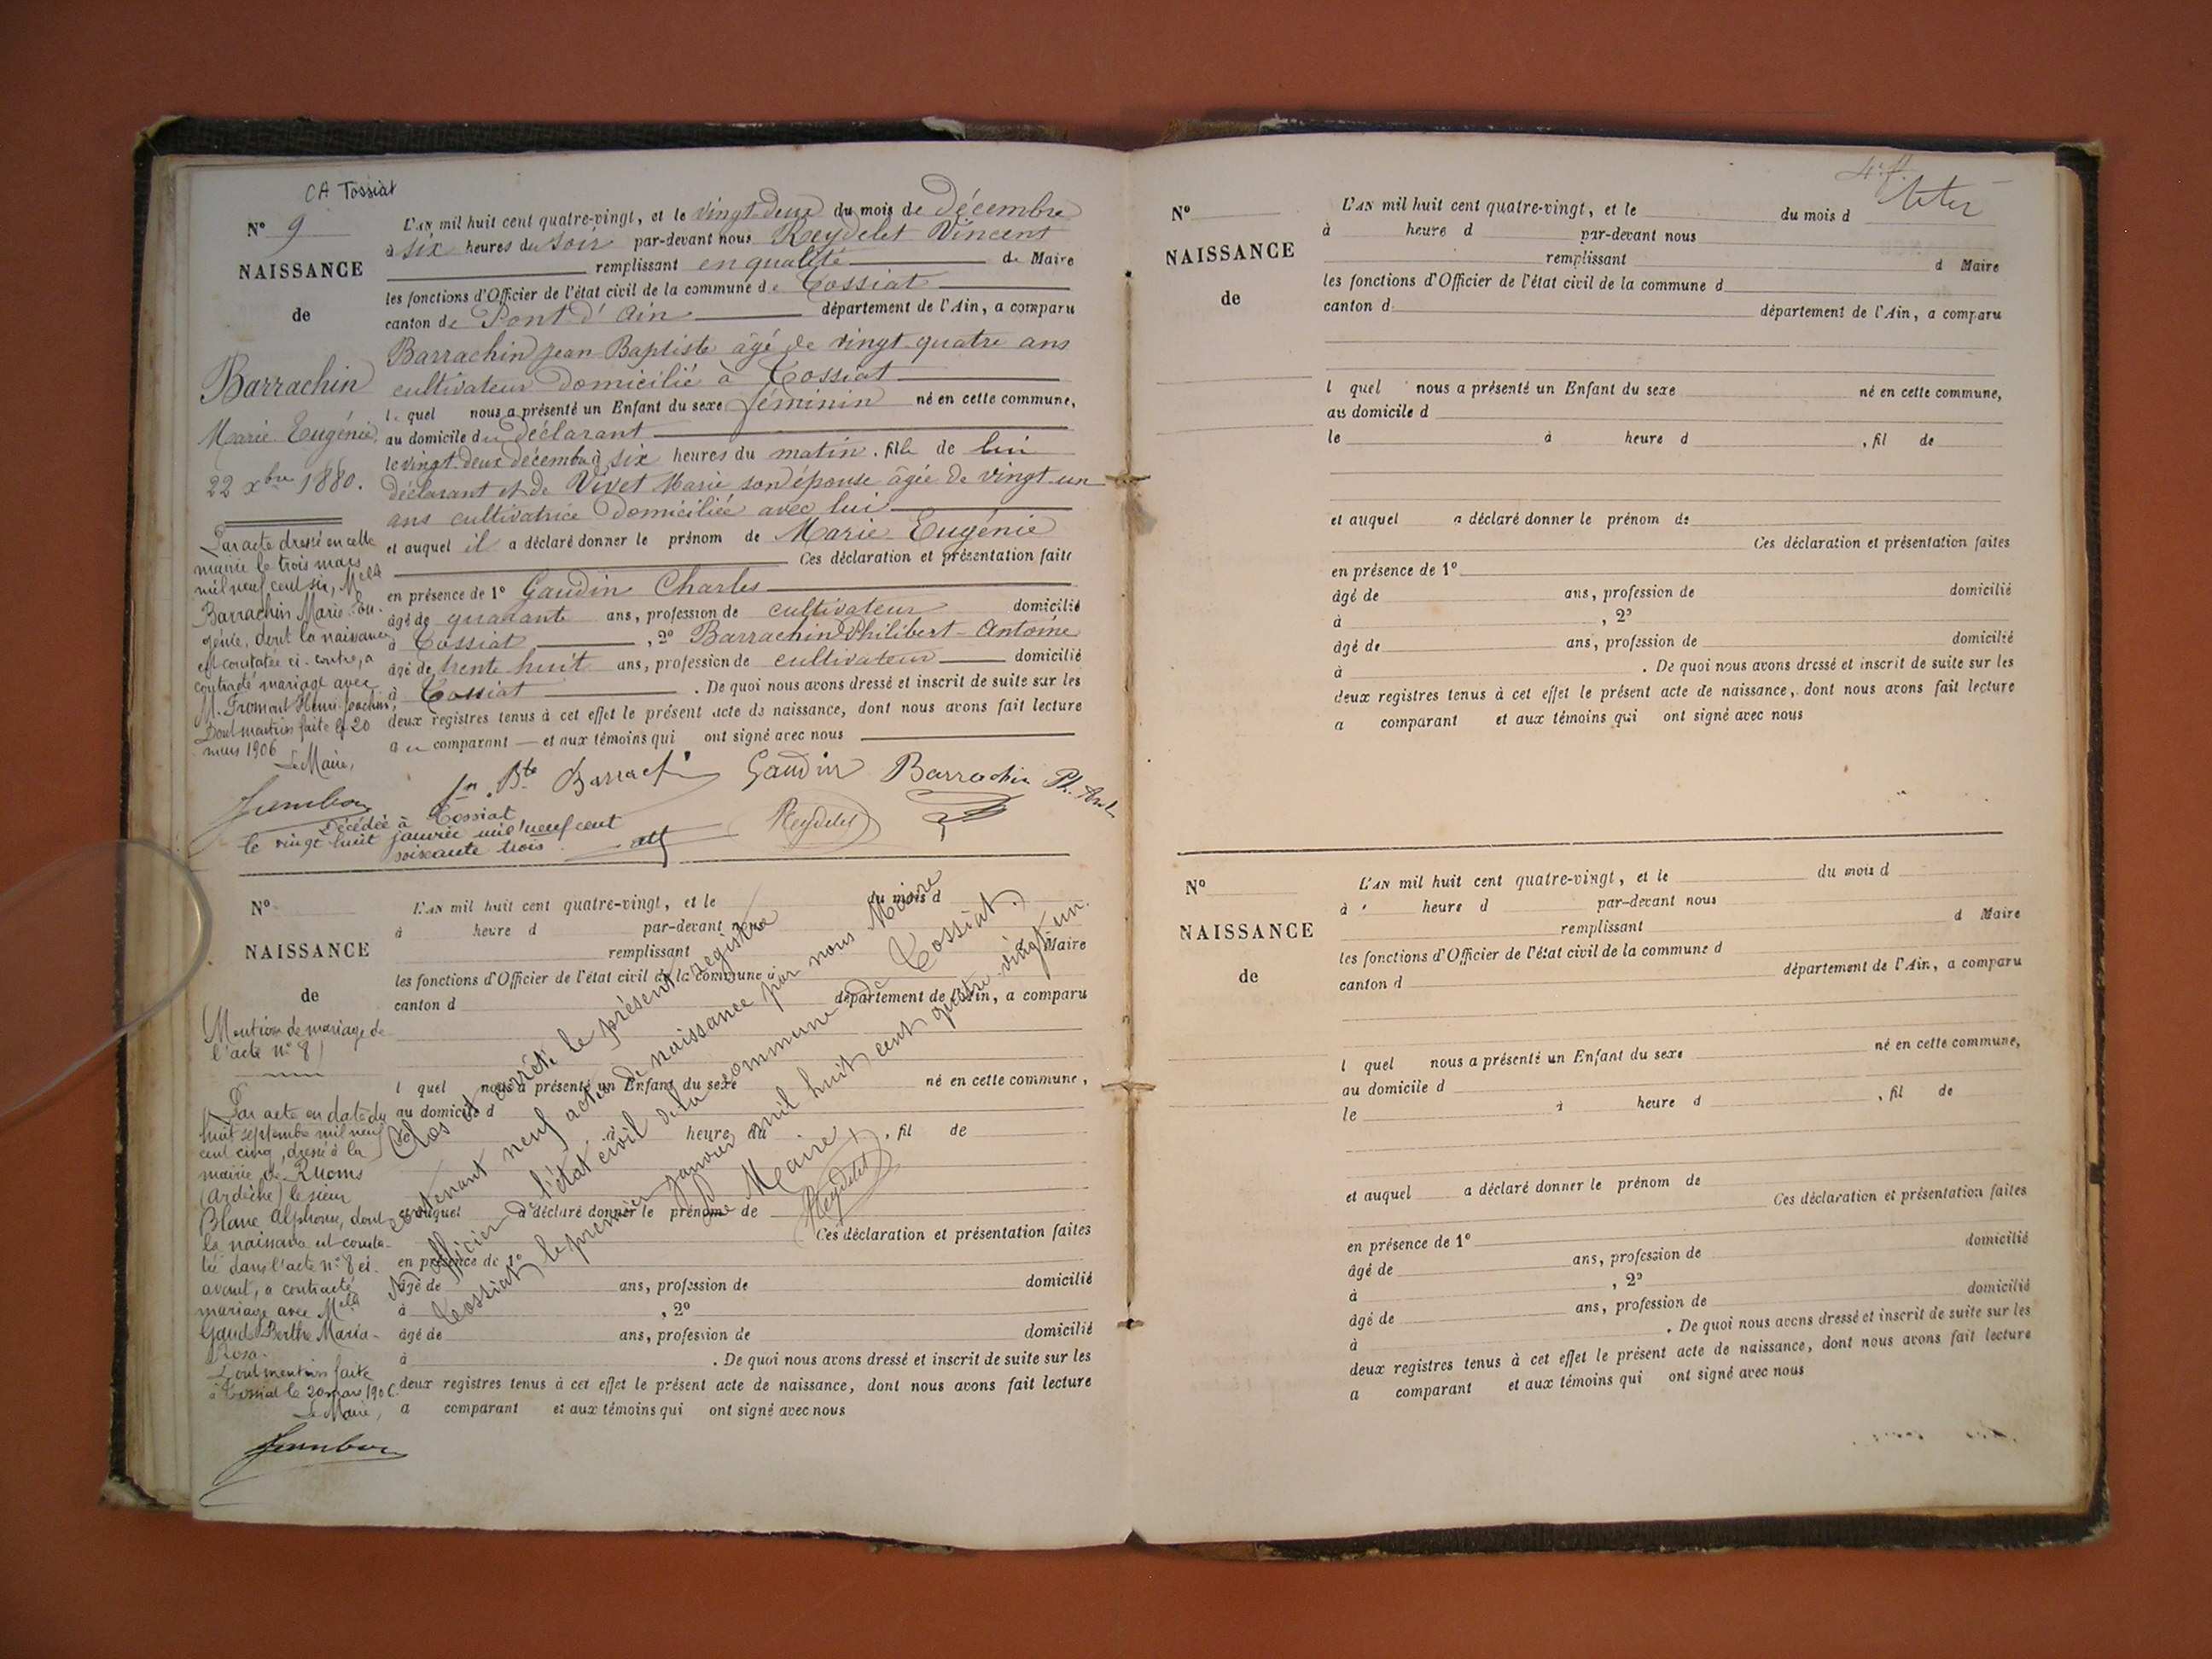 CA Tossiat
N° 9
NAISSANCE
de
Barrachin
Marie Eugénie
22 xbre 1880.
L'AN mil huit cent quatre-vingt, et le vingt deux du mois de Décembre
à six heures du soir par-devant nous Reydelet Vincent
remplissant en qualité de Maire
les fonctions d'Officier de l'état civil de la commune de Tossiat
canton de Pont d'Ain département de l'Ain, a comparu
Barrachin Jean Baptiste âgé de vingt quatre ans
cultivateur domicilié à Tossiat
lequel nous a présenté un Enfant du sexe féminin né en cette commune,
au domicile du déclarant
le vingt deux décembre à six heures du matin, fille de lui
déclarant et de Vivet Marie son épouse âgée de vingt un
ans cultivatrice domiciliée avec lui
et auquel il a déclaré donner le prénom de Marie Eugénie
Ces déclaration et présentation faite
en présence de 1° Gaudin Charles
âgé de quarante ans, profession de cultivateur domicilié
à Tossiat, 2° Barrachin Philibert Antoine
âgé de trente huit ans, profession de cultivateur domicilié
à Tossiat. De quoi nous avons dressé et inscrit de suite sur les
deux registres tenus à cet effet le présent acte de naissance, dont nous avons fait lecture
au comparant et aux témoins qui ont signé avec nous
Jn Bte Barrachin Gaudin Barrachin Ph. Ant
Reydelet
Par acte dressé en cette
mairie le trois mars
mil neuf cent six, Melle
Barrachin Marie Eu-
génie, dont la naissance
est constatée ci-contre, a
contracté mariage avec
M. Fromont Henri Joachim,
Dont mention faite le 20
mars 1906
Le Maire,
Décédée à Tossiat
le vingt huit janvier mil neuf cent
soixante trois
N°
NAISSANCE
de
Mention de mariage de
l'acte n° 8
Par acte en date du
huit septembre mil neuf
cent cinq, dressé à la
mairie de Ruoms
(Ardèche) le sieur
Blanc Alphonse, dont
la naissance est consta-
tée dans l'acte n° 8 ci-
avant, a contracté
mariage avec Melle
Gaud Berthe Maria-
Rosa.
Dont mention faite
à Tossiat le 20 mars 1906.
Le Maire,
L'AN mil huit cent quatre-vingt, et le du mois d
à heure d par-devant nous
remplissant d Maire
les fonctions d'Officier de l'état civil de la commune d
canton d département de l'Ain, a comparu
l quel nous a présenté un Enfant du sexe né en cette commune,
au domicile d
le à heure du , fil de
et auquel a déclaré donner le prénom de
Ces déclaration et présentation faites
en présence de 1°
âgé de ans, profession de domicilié
à , 2°
âgé de ans, profession de domicilié
à . De quoi nous avons dressé et inscrit de suite sur les
deux registres tenus à cet effet le présent acte de naissance, dont nous avons fait lecture
a comparant et aux témoins qui ont signé avec nous
Clos et arrêté le présent registre
contenant neuf actes de naissance par nous Maire
et officier de l'état civil de la commune de Tossiat.
Tossiat, le premier janvier mil huit cent quatre-vingt-un.
Le Maire
Reydelet
N°
NAISSANCE
de
L'AN mil huit cent quatre-vingt, et le du mois d
à heure d par-devant nous
remplissant d Maire
les fonctions d'Officier de l'état civil de la commune d
canton d département de l'Ain, a comparu
l quel nous a présenté un Enfant du sexe né en cette commune,
au domicile d
le à heure d , fil de
et auquel a déclaré donner le prénom de
Ces déclaration et présentation faites
en présence de 1°
âgé de ans, profession de domicilié
à , 2°
âgé de ans, profession de domicilié
à . De quoi nous avons dressé et inscrit de suite sur les
deux registres tenus à cet effet le présent acte de naissance, dont nous avons fait lecture
a comparant et aux témoins qui ont signé avec nous
N°
NAISSANCE
de
L'AN mil huit cent quatre-vingt, et le du mois d
à heure d par-devant nous
remplissant d Maire
les fonctions d'Officier de l'état civil de la commune d
canton d département de l'Ain, a comparu
l quel nous a présenté un Enfant du sexe né en cette commune,
au domicile d
le à heure d , fil de
et auquel a déclaré donner le prénom de
Ces déclaration et présentation faites
en présence de 1°
âgé de ans, profession de domicilié
à , 2°
âgé de ans, profession de domicilié
à . De quoi nous avons dressé et inscrit de suite sur les
deux registres tenus à cet effet le présent acte de naissance, dont nous avons fait lecture
a comparant et aux témoins qui ont signé avec nous